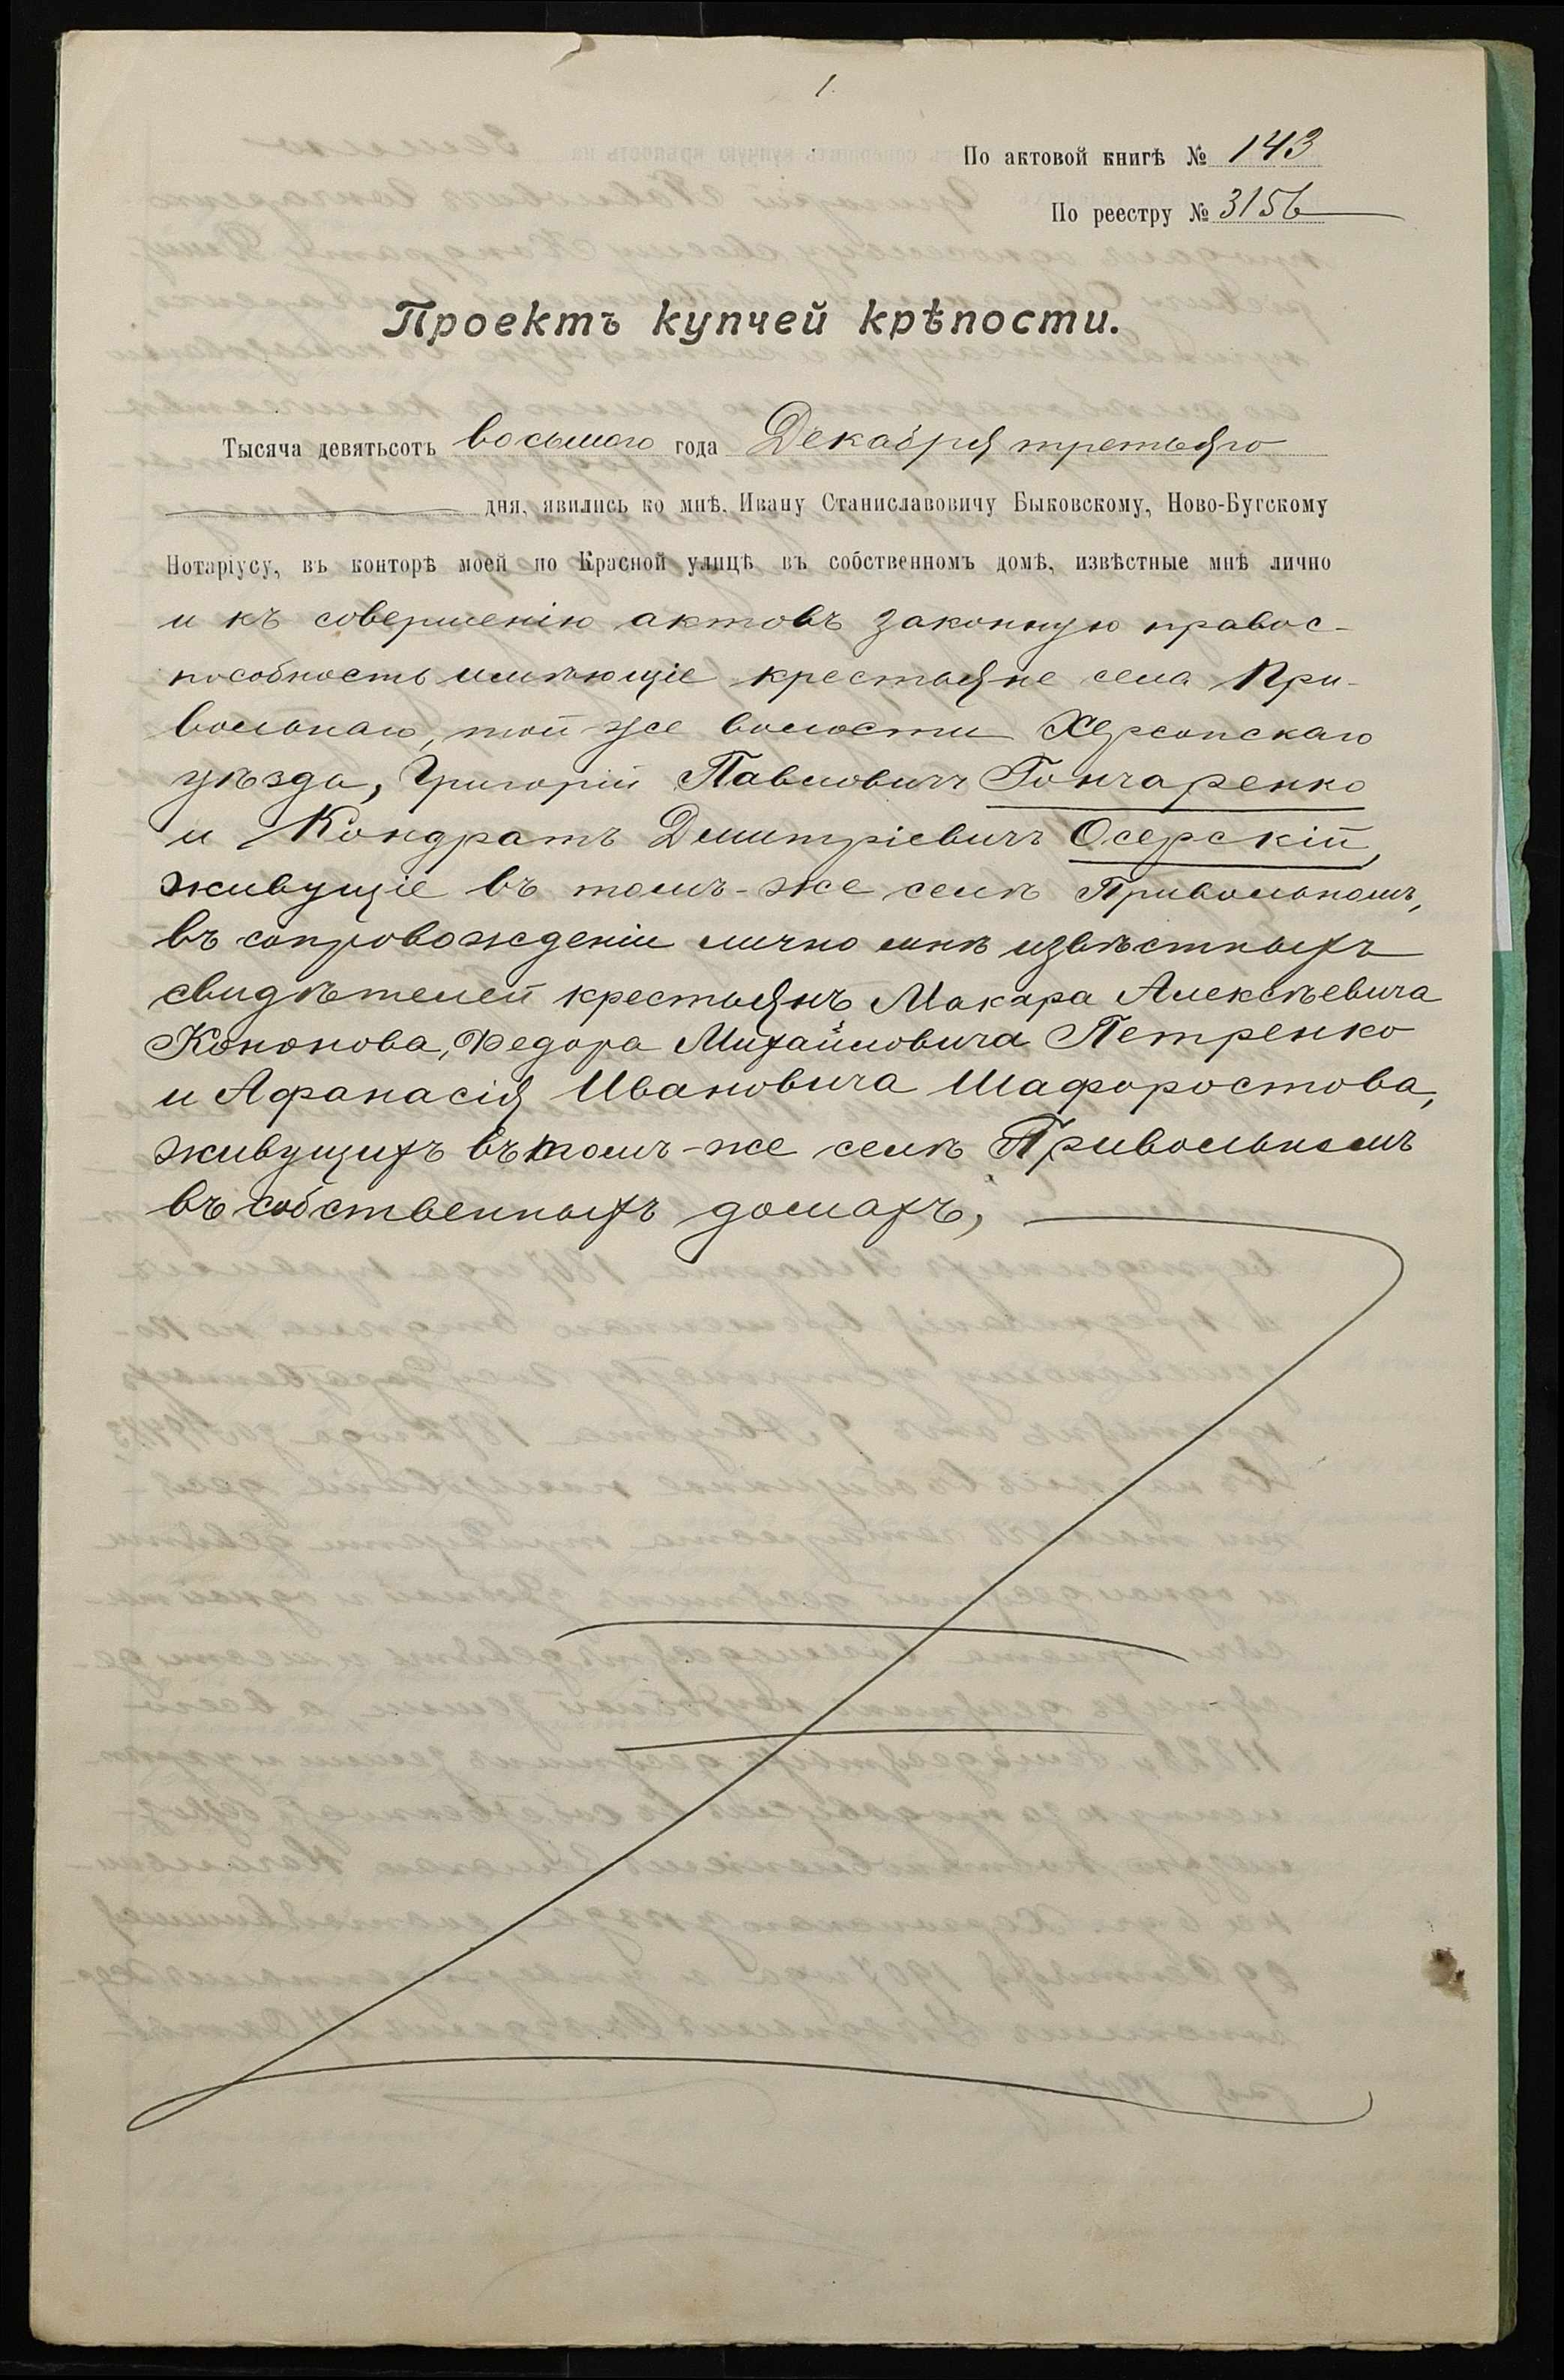 1.
По актовой книгѣ № 143
По реестру № 3156
Проектъ купчей крѣпости.
Тысяча девятьсотъ восьмого года Декабря третьяго
дня, явились ко мнѣ, Ивану Станиславовичу Быковскому, Ново-Бугскому
Нотаріусу, въ конторѣ моей по Красной улицѣ въ собственномъ домѣ, извѣстные мнѣ лично
и къ совершенію актовъ законную правос-
пособность имѣющіе крестьяне села При-
вольнаго, той же волости Херсонскаго
уѣзда, Григорій Павловичъ Гончаренко
и Кондратъ Димитріевичъ Осерскій,
живущіе въ томъ-же селѣ Привольномъ,
въ сопровожденіи лично мнѣ извѣстныхъ
свидѣтелей крестьянъ Макара Алексѣевича
Кононова, Федора Михайловича Петренко
и Афанасія Ивановича Шафоростова,
живущихъ въ томъ-же селѣ Привольномъ
въ собственныхъ домахъ,